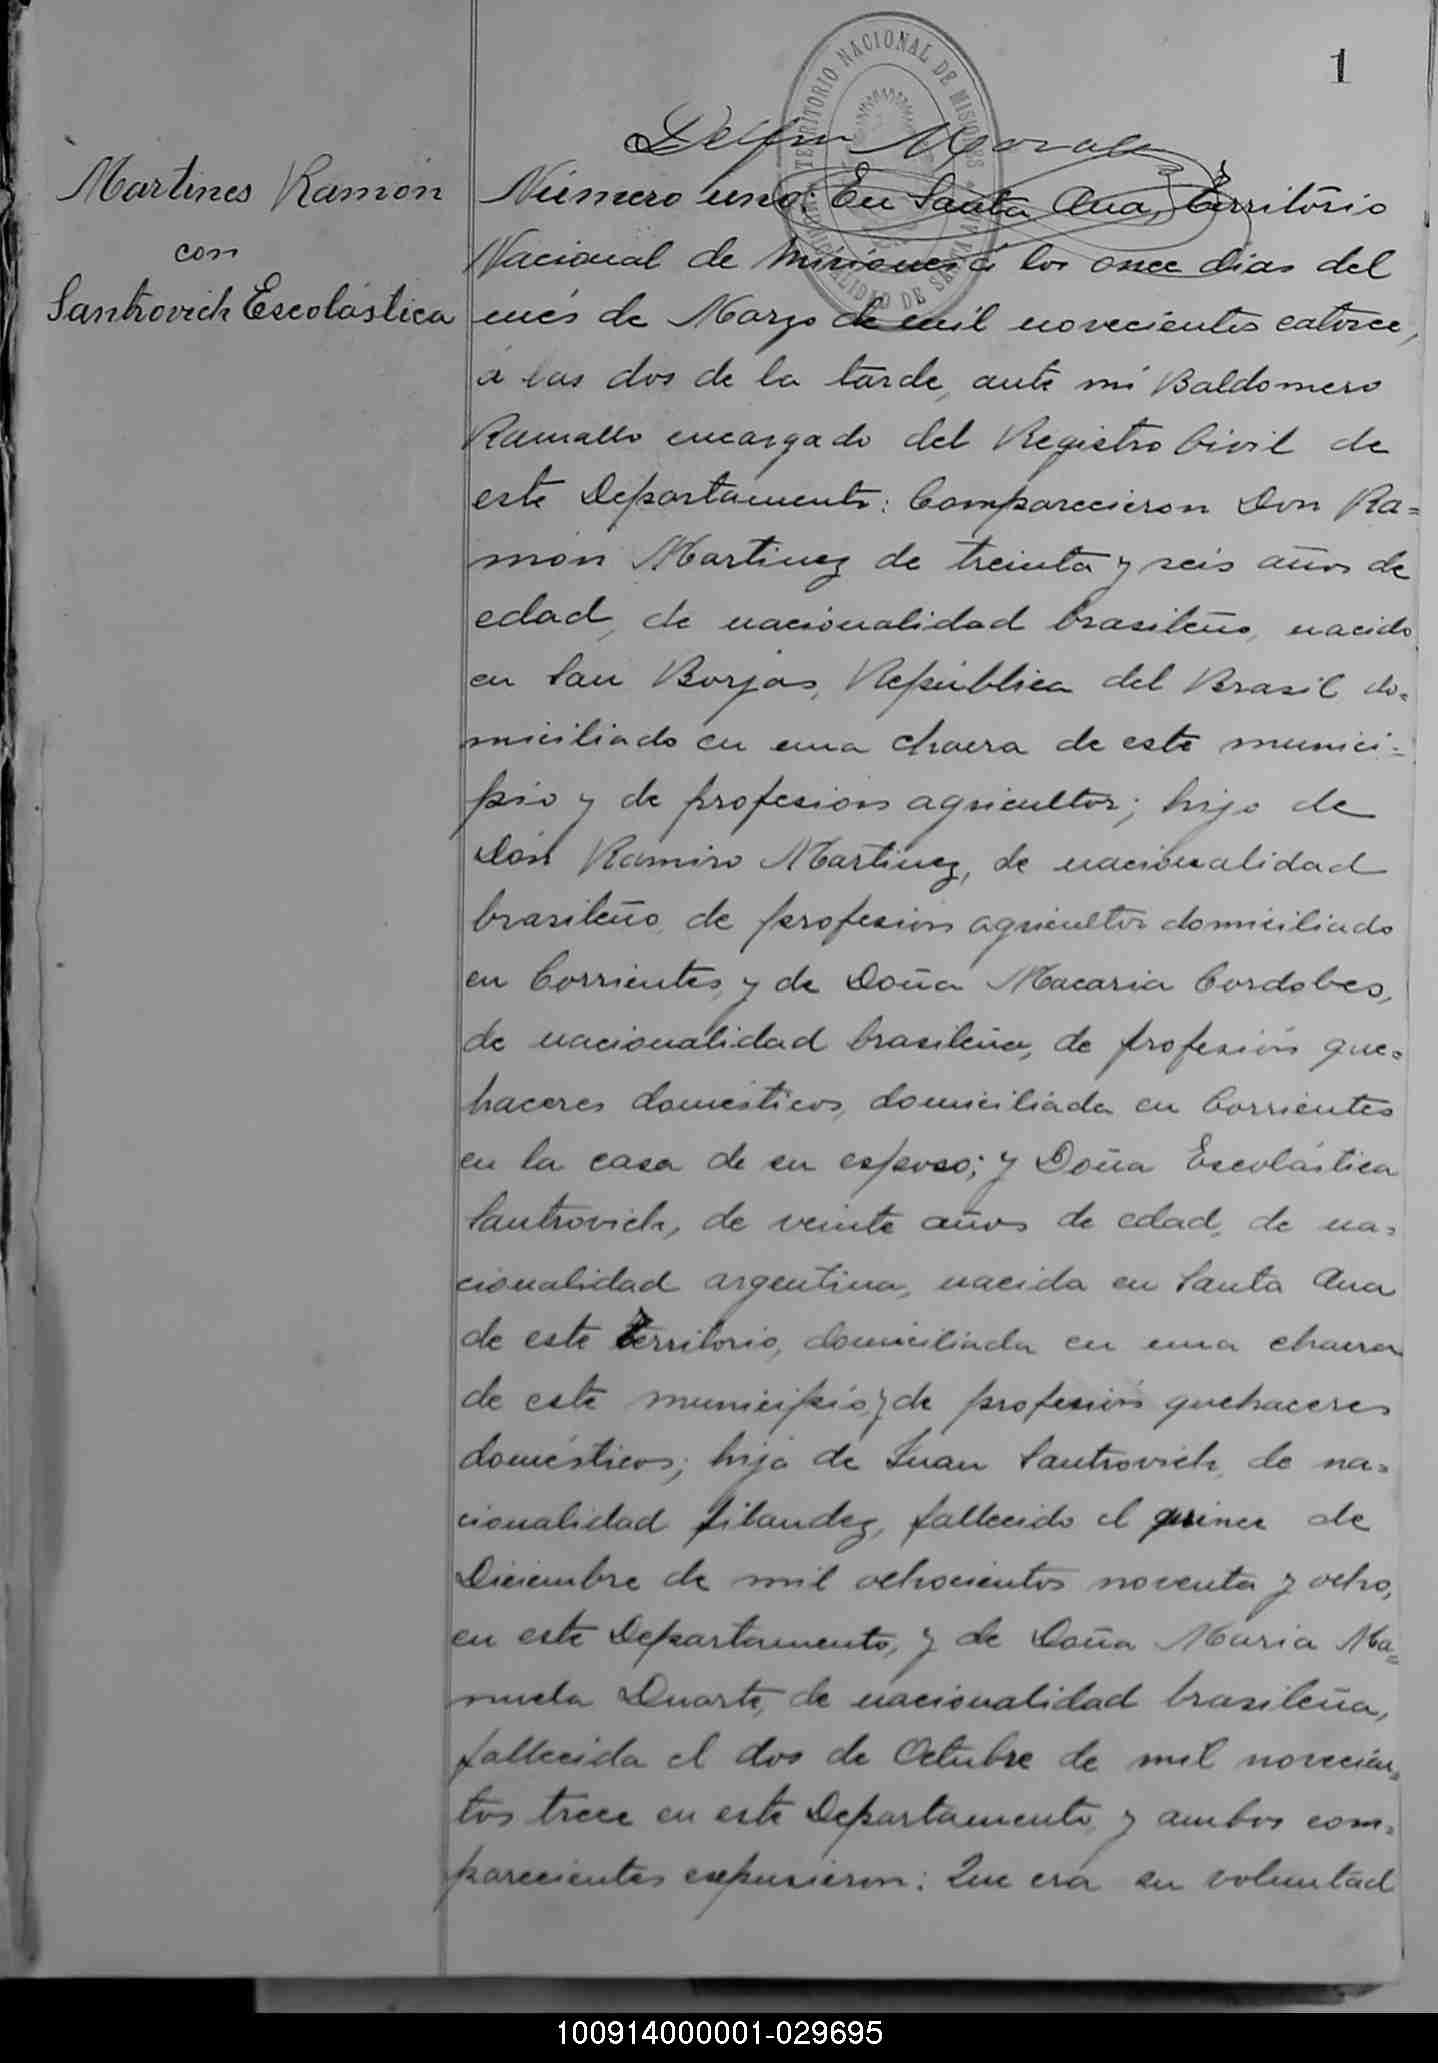 1
TERRITORIO NACIONAL DE MISIONES
MUNICIPALIDAD DE SANTA ANA
Delfin Morales
Martines Ramón
con
Santrovich Escolástica
Número uno: En Santa Ana, Territorio
Nacional de Misiones á los once dias del
més de Marzo de mil novecientos catorce,
á las dos de la tarde, ante mi Baldomero
Ramallo encargado del Registro Civil de
este Departamento: Comparecieron Don Ra=
món Martinez de treinta y seis años de
edad, de nacionalidad brasileño, nacido
en San Borjas, República del Brasil do=
miciliado en una chacra de este munici=
pio y de profesion agricultor; hijo de
Don Ramiro Martinez, de nacionalidad
brasileño, de profesion agricultor domiciliado
en Corrientes, y de Doña Macaria Cordobes,
de nacionalidad brasileña, de profesión que=
haceres domésticos, domiciliada en Corrientes
en la casa de su esposo; y Doña Escolástica
Santrovich, de veinte años de edad, de na=
cionalidad argentina, nacida en Santa Ana
de este territorio, domiciliada en una chacra
de este municipio, y de profesión quehaceres
domésticos; hija de Juan Santrovich, de na=
cionalidad filandez, fallecido el quince de
Diciembre de mil ochocientos noventa y ocho,
en este Departamento, y de Doña Maria Ma=
nuela Duarte, de nacionalidad brasileña,
fallecida el dos de Octubre de mil novecien=
tos trece en este Departamento, y ambos com=
parecientes expusieron: Que era su voluntad
100914000001-029695